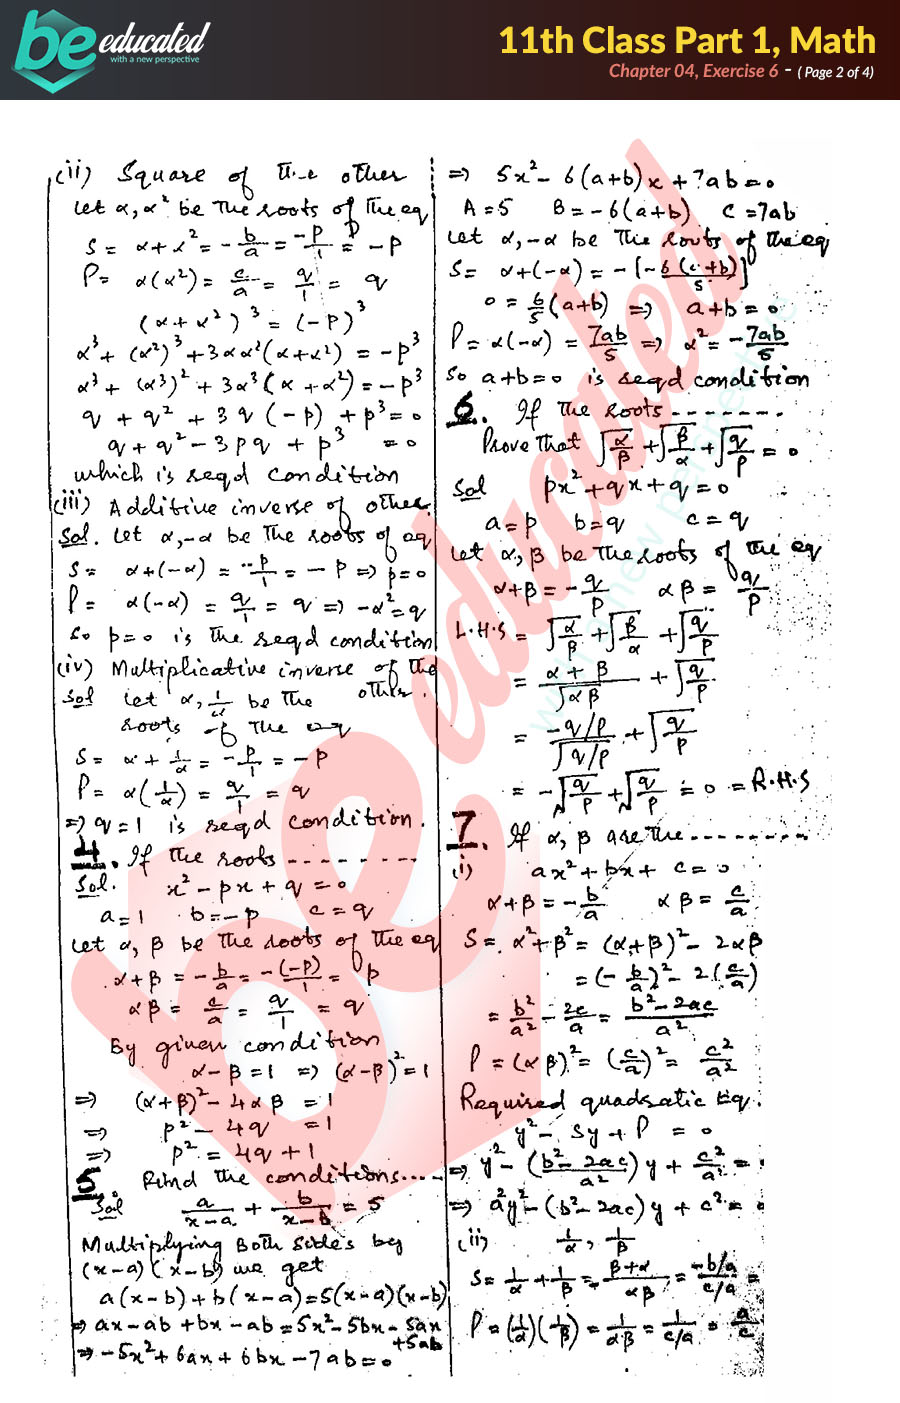 be educated
with a new perspective
11th Class Part 1, Math
Chapter 04, Exercise 6 - ( Page 2 of 4)
(ii) Square of the other
Let α, α² be the roots of the eq
S = α + α² = -b/a = -p/1 = -p
P = α(α²) = c/a = q/1 = q
(α + α²)³ = (-p)³
α³ + (α²)³ + 3αα²(α + α²) = -p³
α³ + (α³)² + 3α³(α + α²) = -p³
q + q² + 3q(-p) + p³ = 0
q + q² - 3pq + p³ = 0
which is reqd condition
(iii) Additive inverse of other.
Sol. Let α, -α be the roots of eq
S = α + (-α) = -p/1 = -p ⇒ p = 0
P = α(-α) = q/1 = q ⇒ -α² = q
So p = 0 is the reqd condition
(iv) Multiplicative inverse of the other.
Sol Let α, 1/α be the
roots of the eq
S = α + 1/α = -p/1 = -p
P = α(1/α) = q/1 = q
⇒ q = 1 is reqd condition.
4. If the roots ---------
Sol. x² - px + q = 0
a = 1 b = -p c = q
Let α, β be the roots of the eq
α + β = -b/a = -(-p)/1 = p
αβ = c/a = q/1 = q
By given condition
α - β = 1 ⇒ (α - β)² = 1
⇒ (α + β)² - 4αβ = 1
⇒ p² - 4q = 1
⇒ p² = 4q + 1
5. Find the conditions....
Sol a/(x-a) + b/(x-b) = 5
Multiplying Both sides by
(x-a)(x-b) we get
a(x-b) + b(x-a) = 5(x-a)(x-b)
⇒ ax - ab + bx - ab = 5x² - 5bx - 5ax
+5ab
⇒ -5x² + 6ax + 6bx - 7ab = 0
⇒ 5x² - 6(a+b)x + 7ab = 0
A = 5 B = -6(a+b) C = 7ab
Let α, -α be the roots of the eq
S = α + (-α) = -[-6(a+b)/5]
0 = 6/5(a+b) ⇒ a+b = 0
P = α(-α) = 7ab/5 ⇒ α² = -7ab/5
So a+b = 0 is reqd condition
6. If the roots -------
Prove that √(α/β) + √(β/α) + √(q/p) = 0
Sol px² + qx + q = 0
a = p b = q c = q
Let α, β be the roots of the eq
α + β = -q/p αβ = q/p
L.H.S = √(α/β) + √(β/α) + √(q/p)
= (α + β)/√(αβ) + √(q/p)
= (-q/p)/√(q/p) + √(q/p)
= -√(q/p) + √(q/p) = 0 = R.H.S
7. If α, β are the ---------
(i) ax² + bx + c = 0
α + β = -b/a αβ = c/a
S = α² + β² = (α + β)² - 2αβ
= (-b/a)² - 2(c/a)
= b²/a² - 2c/a = (b² - 2ac)/a²
P = (αβ)² = (c/a)² = c²/a²
Required quadratic Eq.
y² - Sy + P = 0
⇒ y² - ((b² - 2ac)/a²)y + c²/a² =
⇒ a²y² - (b² - 2ac)y + c² = 0
(ii) 1/α, 1/β
S = 1/α + 1/β = (β + α)/αβ = (-b/a)/(c/a) =
P = (1/α)(1/β) = 1/αβ = 1/(c/a) = a/c